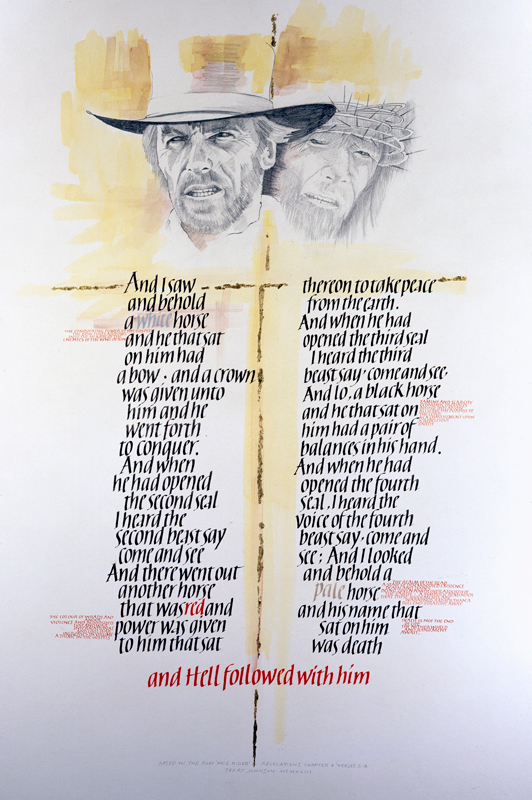 And I saw
and behold
a white horse
and he that sat
on him had
a bow · and a crown
was given unto
him and he
went forth
to conquer.
And when
he had opened
the second seal
I heard the
second beast say
come and see
And there went out
another horse
that was red and
power was given
to him that sat
thereon to take peace
from the earth.
And when he had
opened the third seal
I heard the third
beast say · come and see ·
And lo · a black horse
and he that sat on
him had a pair of
balances in his hand.
And when he had
opened the fourth
seal · I heard the
voice of the fourth
beast say · come and
see : And I looked
and behold a
pale horse
and his name that
sat on him
was death
and Hell followed with him
BASED ON THE FILM 'PALE RIDER' REVELATIONS CHAPTER 6 VERSES 2-8